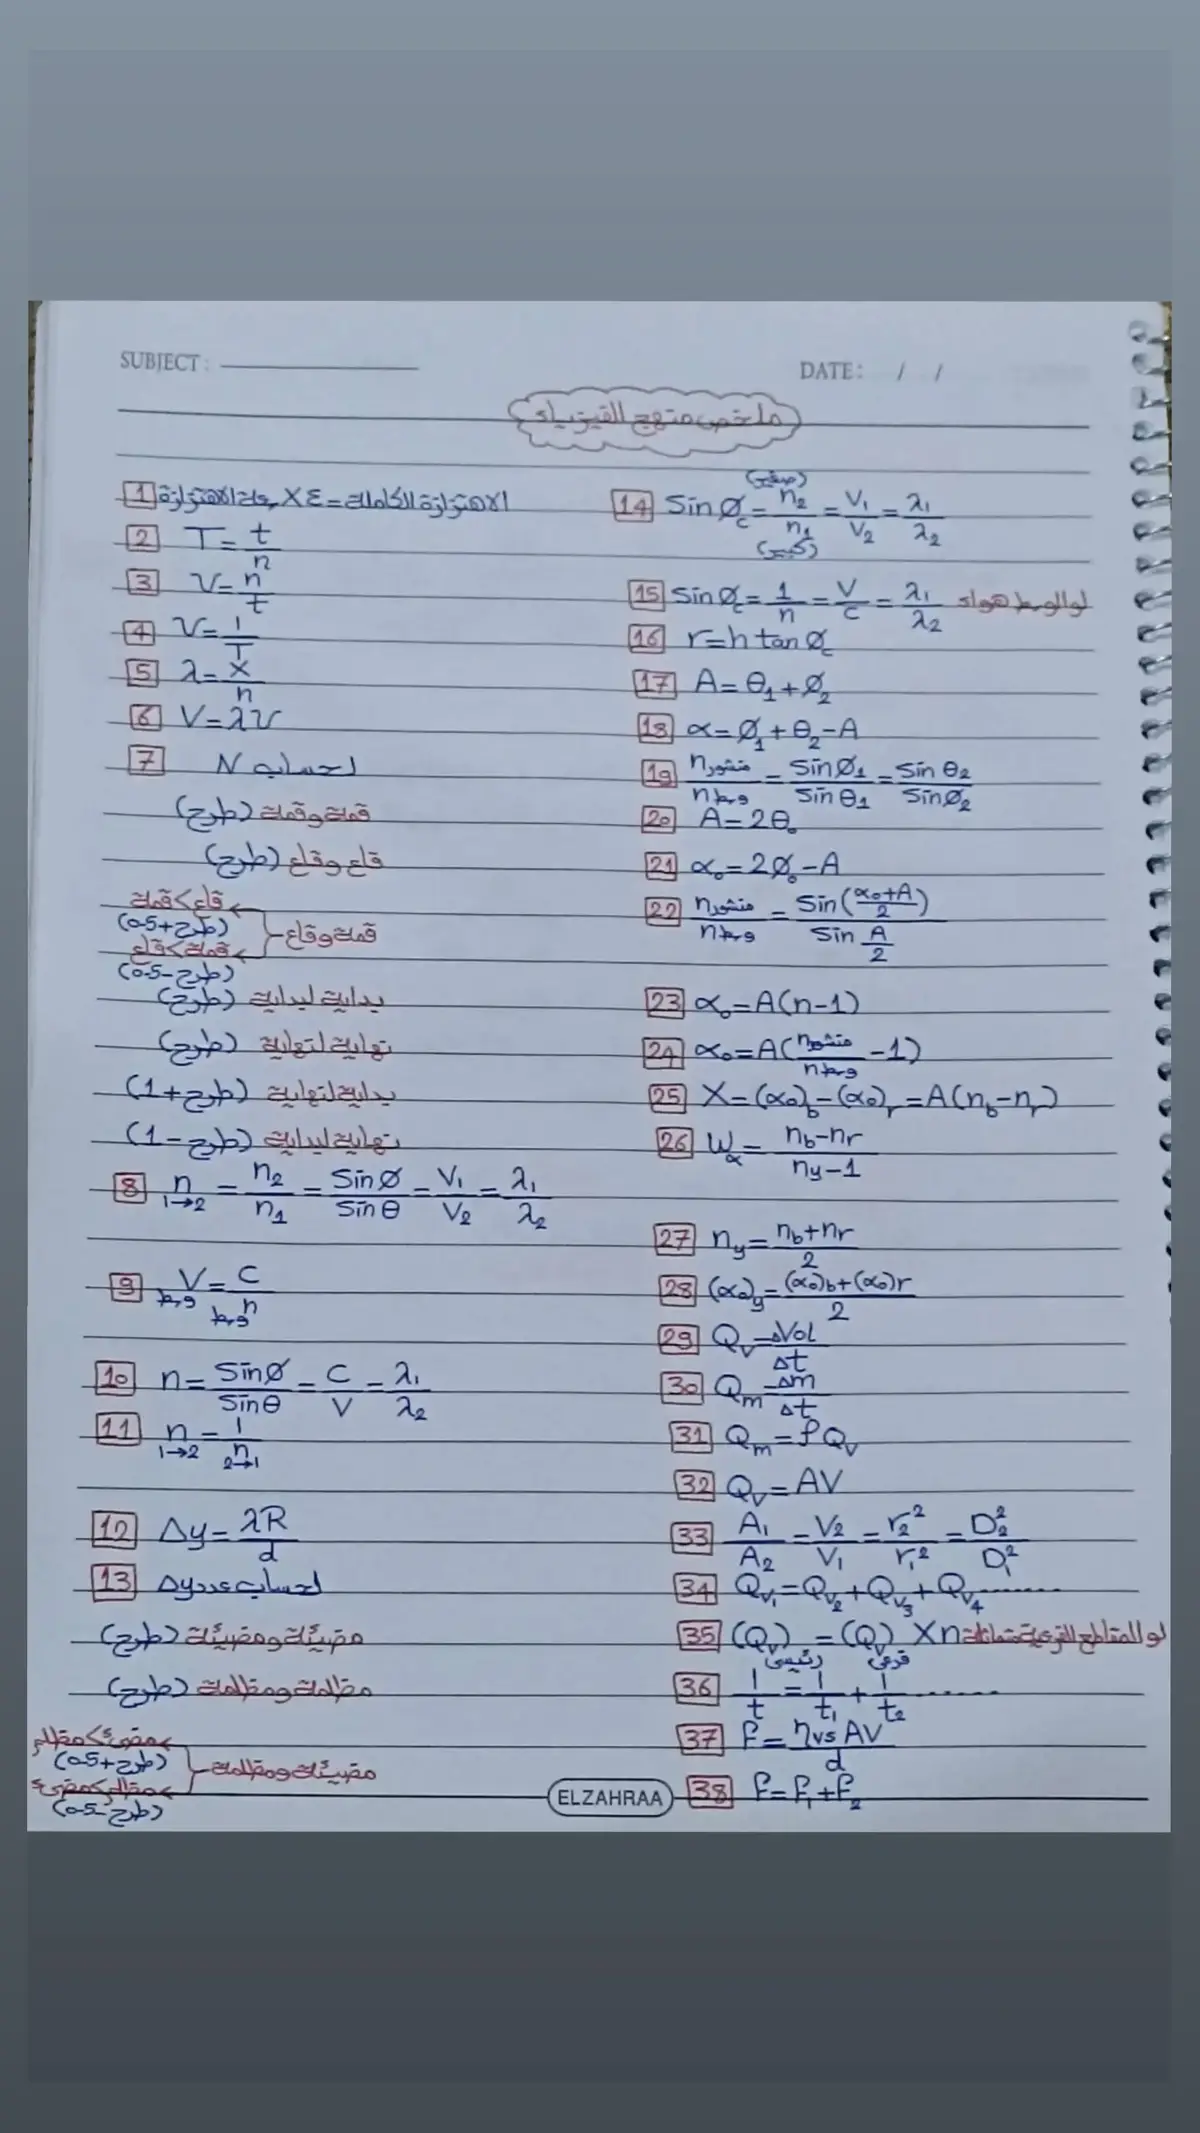 SUBJECT:
DATE: / /
ملخص منهج الفيزياء
1 الاهتزازة الكاملة = ٤ × سعة الاهتزازة
2 T = t/n
3 ν = n/t
4 ν = 1/T
5 λ = x/n
6 V = λν
7 لحساب N
قمة وقمة (طرح)
قاع وقاع (طرح)
قمة وقاع
قاع > قمة
(طرح + 0.5)
قمة > قاع
(طرح - 0.5)
بداية لبداية (طرح)
نهاية لنهاية (طرح)
بداية لنهاية (طرح + 1)
نهاية لبداية (طرح - 1)
8 1n2 = n2/n1 = Sinϕ/Sinθ = V1/V2 = λ1/λ2
9 V وسط = C/n وسط
10 n = Sinϕ/Sinθ = C/V = λ1/λ2
11 n 1→2 = 1/n 2→1
12 Δy = λR/d
13 لحساب عدد Δy
مضيئة ومضيئة (طرح)
مظلمة ومظلمة (طرح)
مضيئة ومظلمة
مضئ > مظلم
(طرح + 0.5)
مظلم > مضئ
(طرح - 0.5)
14 Sinϕc = n2 (صغير)/n1 (كبير) = V1/V2 = λ1/λ2
15 Sinϕc = 1/n = V/C = λ1/λ2 لو الوسط هواء
16 r = h tanϕc
17 A = θ1 + ϕ2
18 α = ϕ1 + θ2 - A
19 n منشور/n وسط = Sinϕ1/Sinθ1 = Sinθ2/Sinϕ2
20 A = 2θ₀
21 α₀ = 2ϕ₀ - A
22 n منشور/n وسط = Sin((α₀+A)/2)/Sin A/2
23 α₀ = A(n-1)
24 α₀ = A(n منشور/n وسط - 1)
25 X = (α₀)b - (α₀)r = A(nb - nr)
26 Wα = nb-nr/ny-1
27 ny = nb+nr/2
28 (α₀)y = (α₀)b+(α₀)r/2
29 Qv = ΔVol/Δt
30 Qm = Δm/Δt
31 Qm = ρQv
32 Qv = AV
33 A1/A2 = V2/V1 = r2²/r1² = D2²/D1²
34 Qv1 = Qv2 + Qv3 + Qv4 ........
35 (Qv) رئيسى = (Qv) فرعى × n لو المقاطع الفرعية متماثلة
36 1/t = 1/t1 + 1/t2 .......
37 F = ηvs AV/d
38 F = F1 + F2
ELZAHRAA